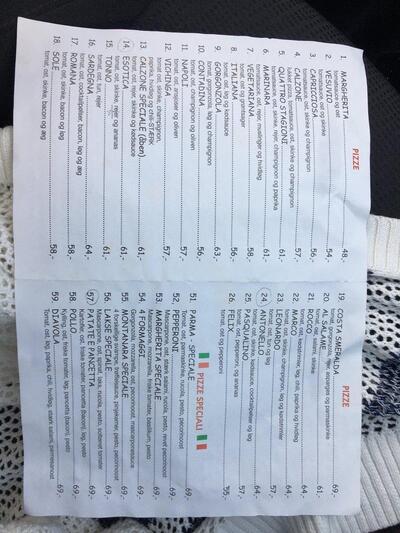 PIZZE
1. MARGHERITA 48,-
tomatsauce og ost
2. VESUVIO 54,-
tomatsauce, ost og skinke
3. CAPRICCIOSA 56,-
tomatsauce, ost, skinke og champignon
4. CALZONE 57,-
lukket pizza, tomatsauce, ost, skinke
5. QUATTRO STAGIONI 61,-
tomatsauce, ost, skinke, rejer, champignon og paprika
6. MARINARA 61,-
tomat, ost, rejer, muslinger og hvidløg
7. VEGETARIANA 58,-
tomat, ost og grøntsager
8. ITALIANA 56,-
tomat, ost, løg og kødsauce
9. GORGONZOLA 63,-
tomat, gorgonzola, løg og champignon
10. CONTADINA 56,-
tomat, ost, skinke og oliven
11. NAPOLI
tomat, ost, ansjoser og oliven
12. VICHINGA 57,-
tomat, ost, skinke, champignon,
paprika, hvidløg og chili-STÆRK
13. CALZONE SPECIALE (åben) 54,-
tomat, ost, rejer, skinke og kødsauce
14. ESOTICA 61,-
tomat, ost, skinke, rejer og ananas
15. TONNO 61,-
tomat, ost, tun, rejer
16. SARDEGNA 64,-
tomat, ost, cocktailpølser, bacon, løg og æg
17. ROMANA
tomat, ost, skinke, bacon og æg
18. SOLE 58,-
tomat, ost, skinke, bacon og æg
PIZZE
19. COSTA SMERALDA 69,-
tomat, gorgonzola, rejer, asparges og parmaskinke
20. AL SALAME 61,-
tomat, ost, salami, skinke
21. ROCCO
22. MARCO 64,-
tomat, ost, kødstrimler, løg, chili, paprika og hvidløg
23. LEONARDO 64,-
tomat, ost, skinke, champignon, løg og kødstrimler
24. ANTONELLO
tomat, ost, kødsauce, cocktailpølser og løg
25. PASQUALINO 57,-
tomat, ost, pepperoni, og ananas
26. FELIX
tomat, ost og pepperoni
PIZZE SPECIALI
51. PARMA - SPECIALE 69,-
Tomat, ost, parmaskinke, rucola, pesto, pecorinoost
52. PEPPERONI 69,-
53. MARGHERITA SPECIALE 69,-
Mascarpone, mozzarella, friske tomater, basilikum, pesto
54. 4 FORMAGGI 69,-
Gorgonzola, mozzarella, ost, pecorinoost, mascarponesauce
55. MONTANARA SPECIALE 69,-
56. LAKSE SPECIALE 69,-
Mascarpone, ost, spinat, laks, rucola, pesto, soltørret tomater
57. PATATE E PANCETTA 69,-
Kartofler, ost, friske tomater, pancetta (bacon), løg, pesto
58. POLLO 69,-
Kylling, ost, friske tomater, løg, pancetta (bacon), pesto
59. DIAVOLA 69,-
Tomat, ost, løg, paprika, chili, hvidløg, stærk salami, parmesanost